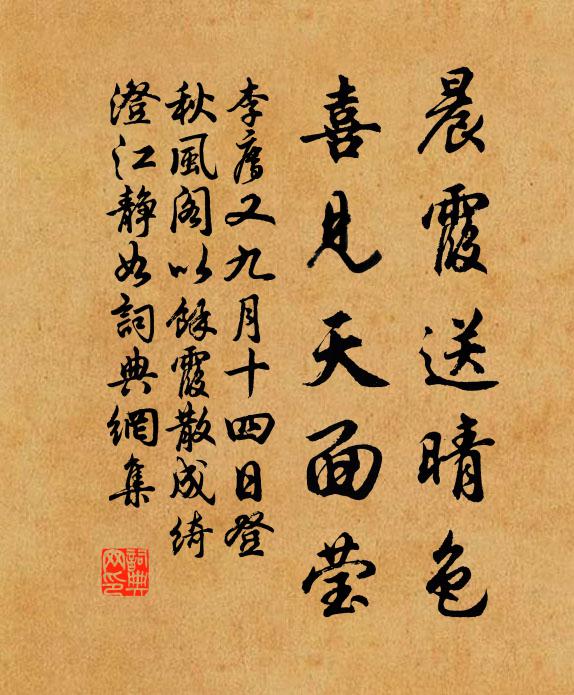 晨霞送晴色
喜見天面莹
李廌又九月十四日登
秋風閣以餘霞散成綺
澄江靜如詞典網集
詞典
网印